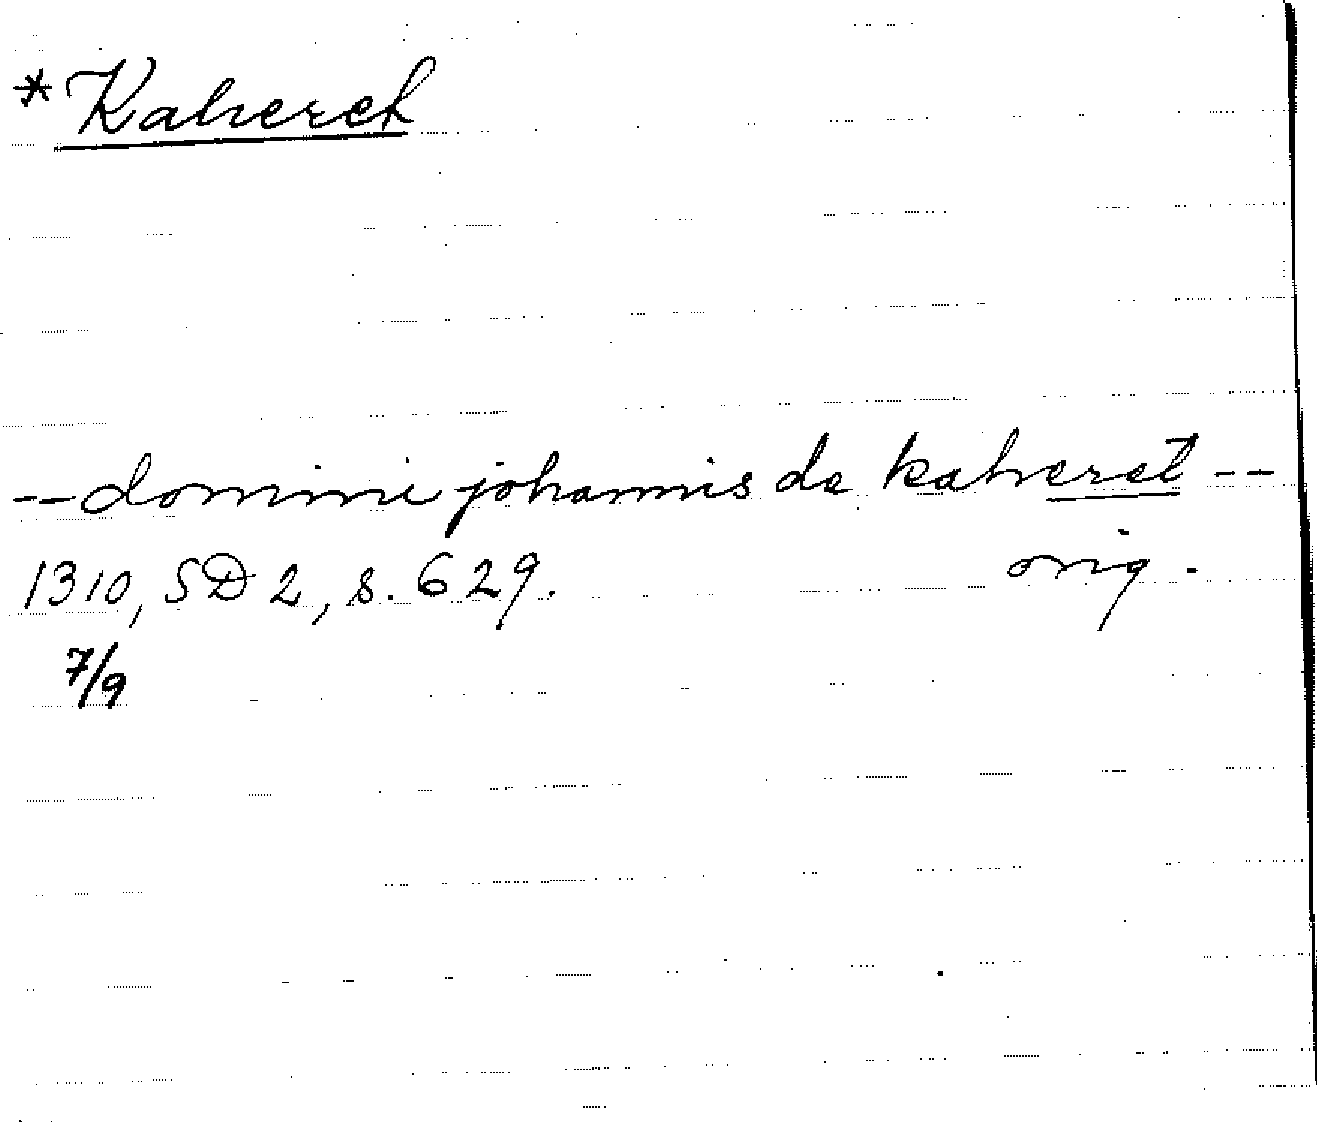 * Kaherek
-- domini johannis de kaheret --
1310, SD 2, s. 629. orig.
7/9